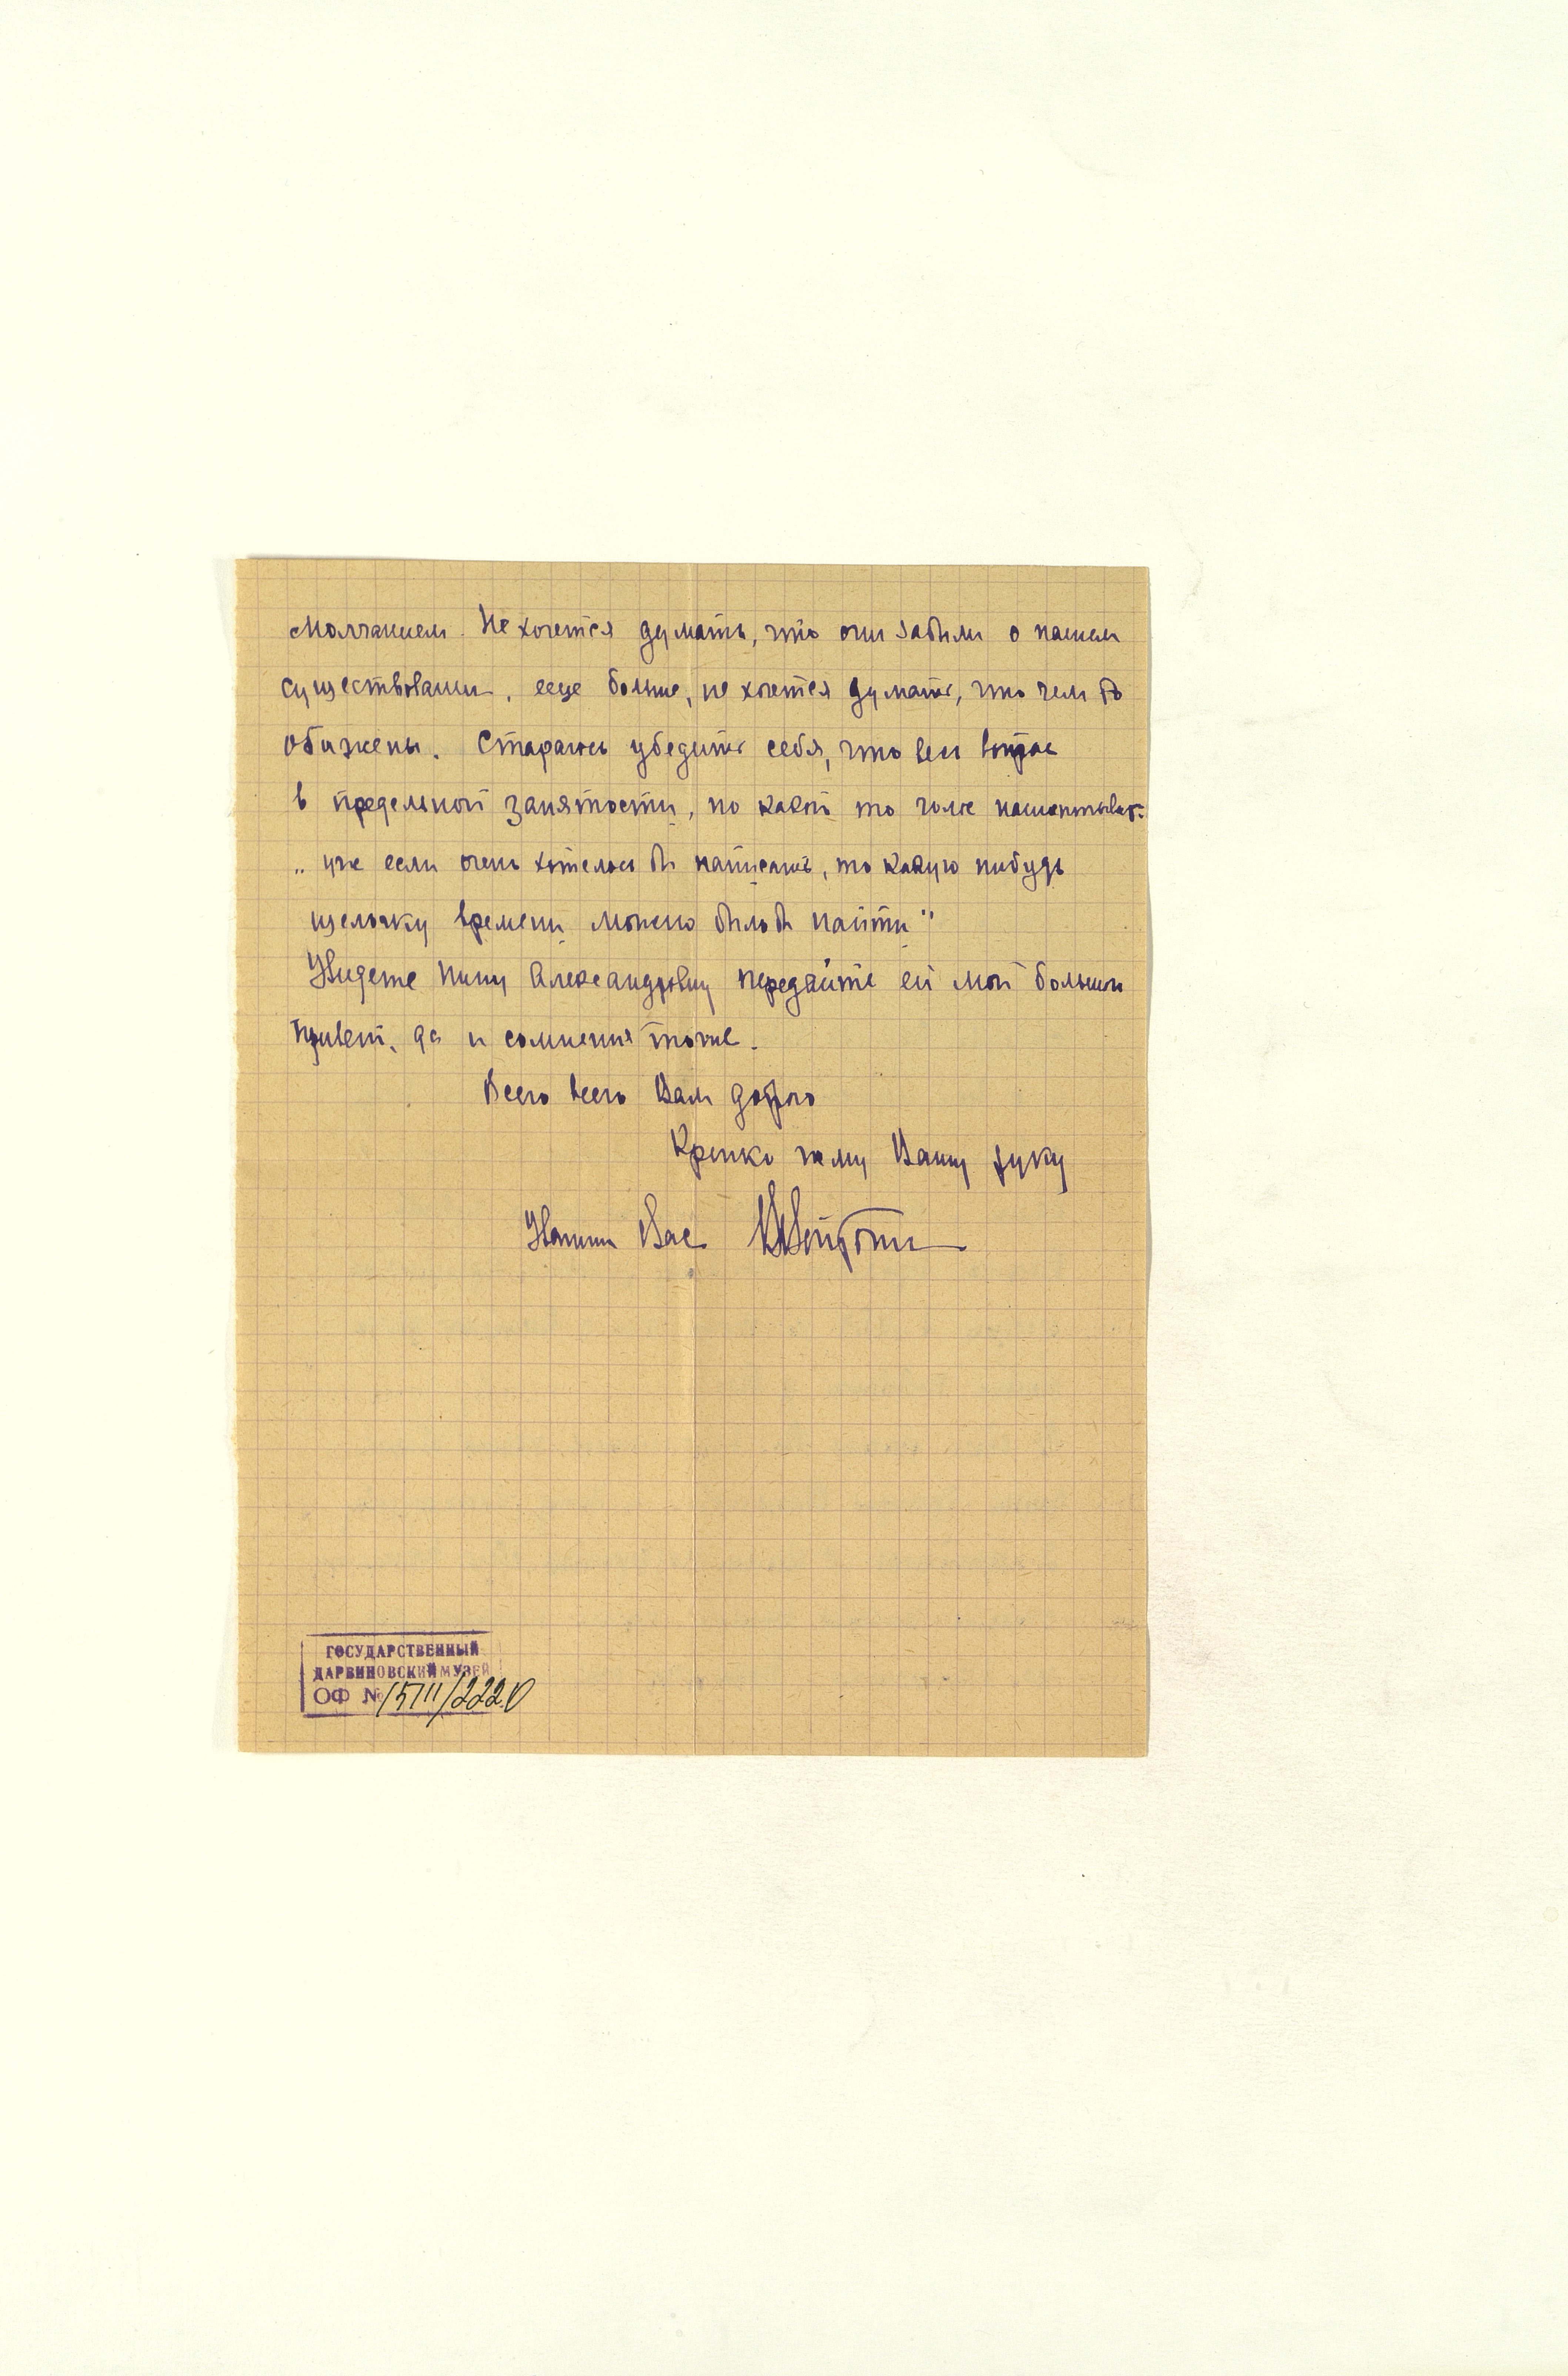 молчанием. Не хочется думать, что они забыли о нашем
существовании, еще больше, не хочется думать, что чем то
обижены. Стараюсь убедить себя, что весь вопрос
в предельной занятости, но какой то голос нашептывает:
„уж если очень хотелось бы написать, то какую нибудь
щелочку времени можно было бы найти"
Увидете Нину Александровну передайте ей мой большой
привет, да и сомнения тоже.
Всего всего Вам доброго
Крепко жму Вашу руку
Ваc
ГОСУДАРСТВЕННЫЙ
ДАРВИНОВСКИЙ МУЗЕЙ
ОФ № 15111/222.